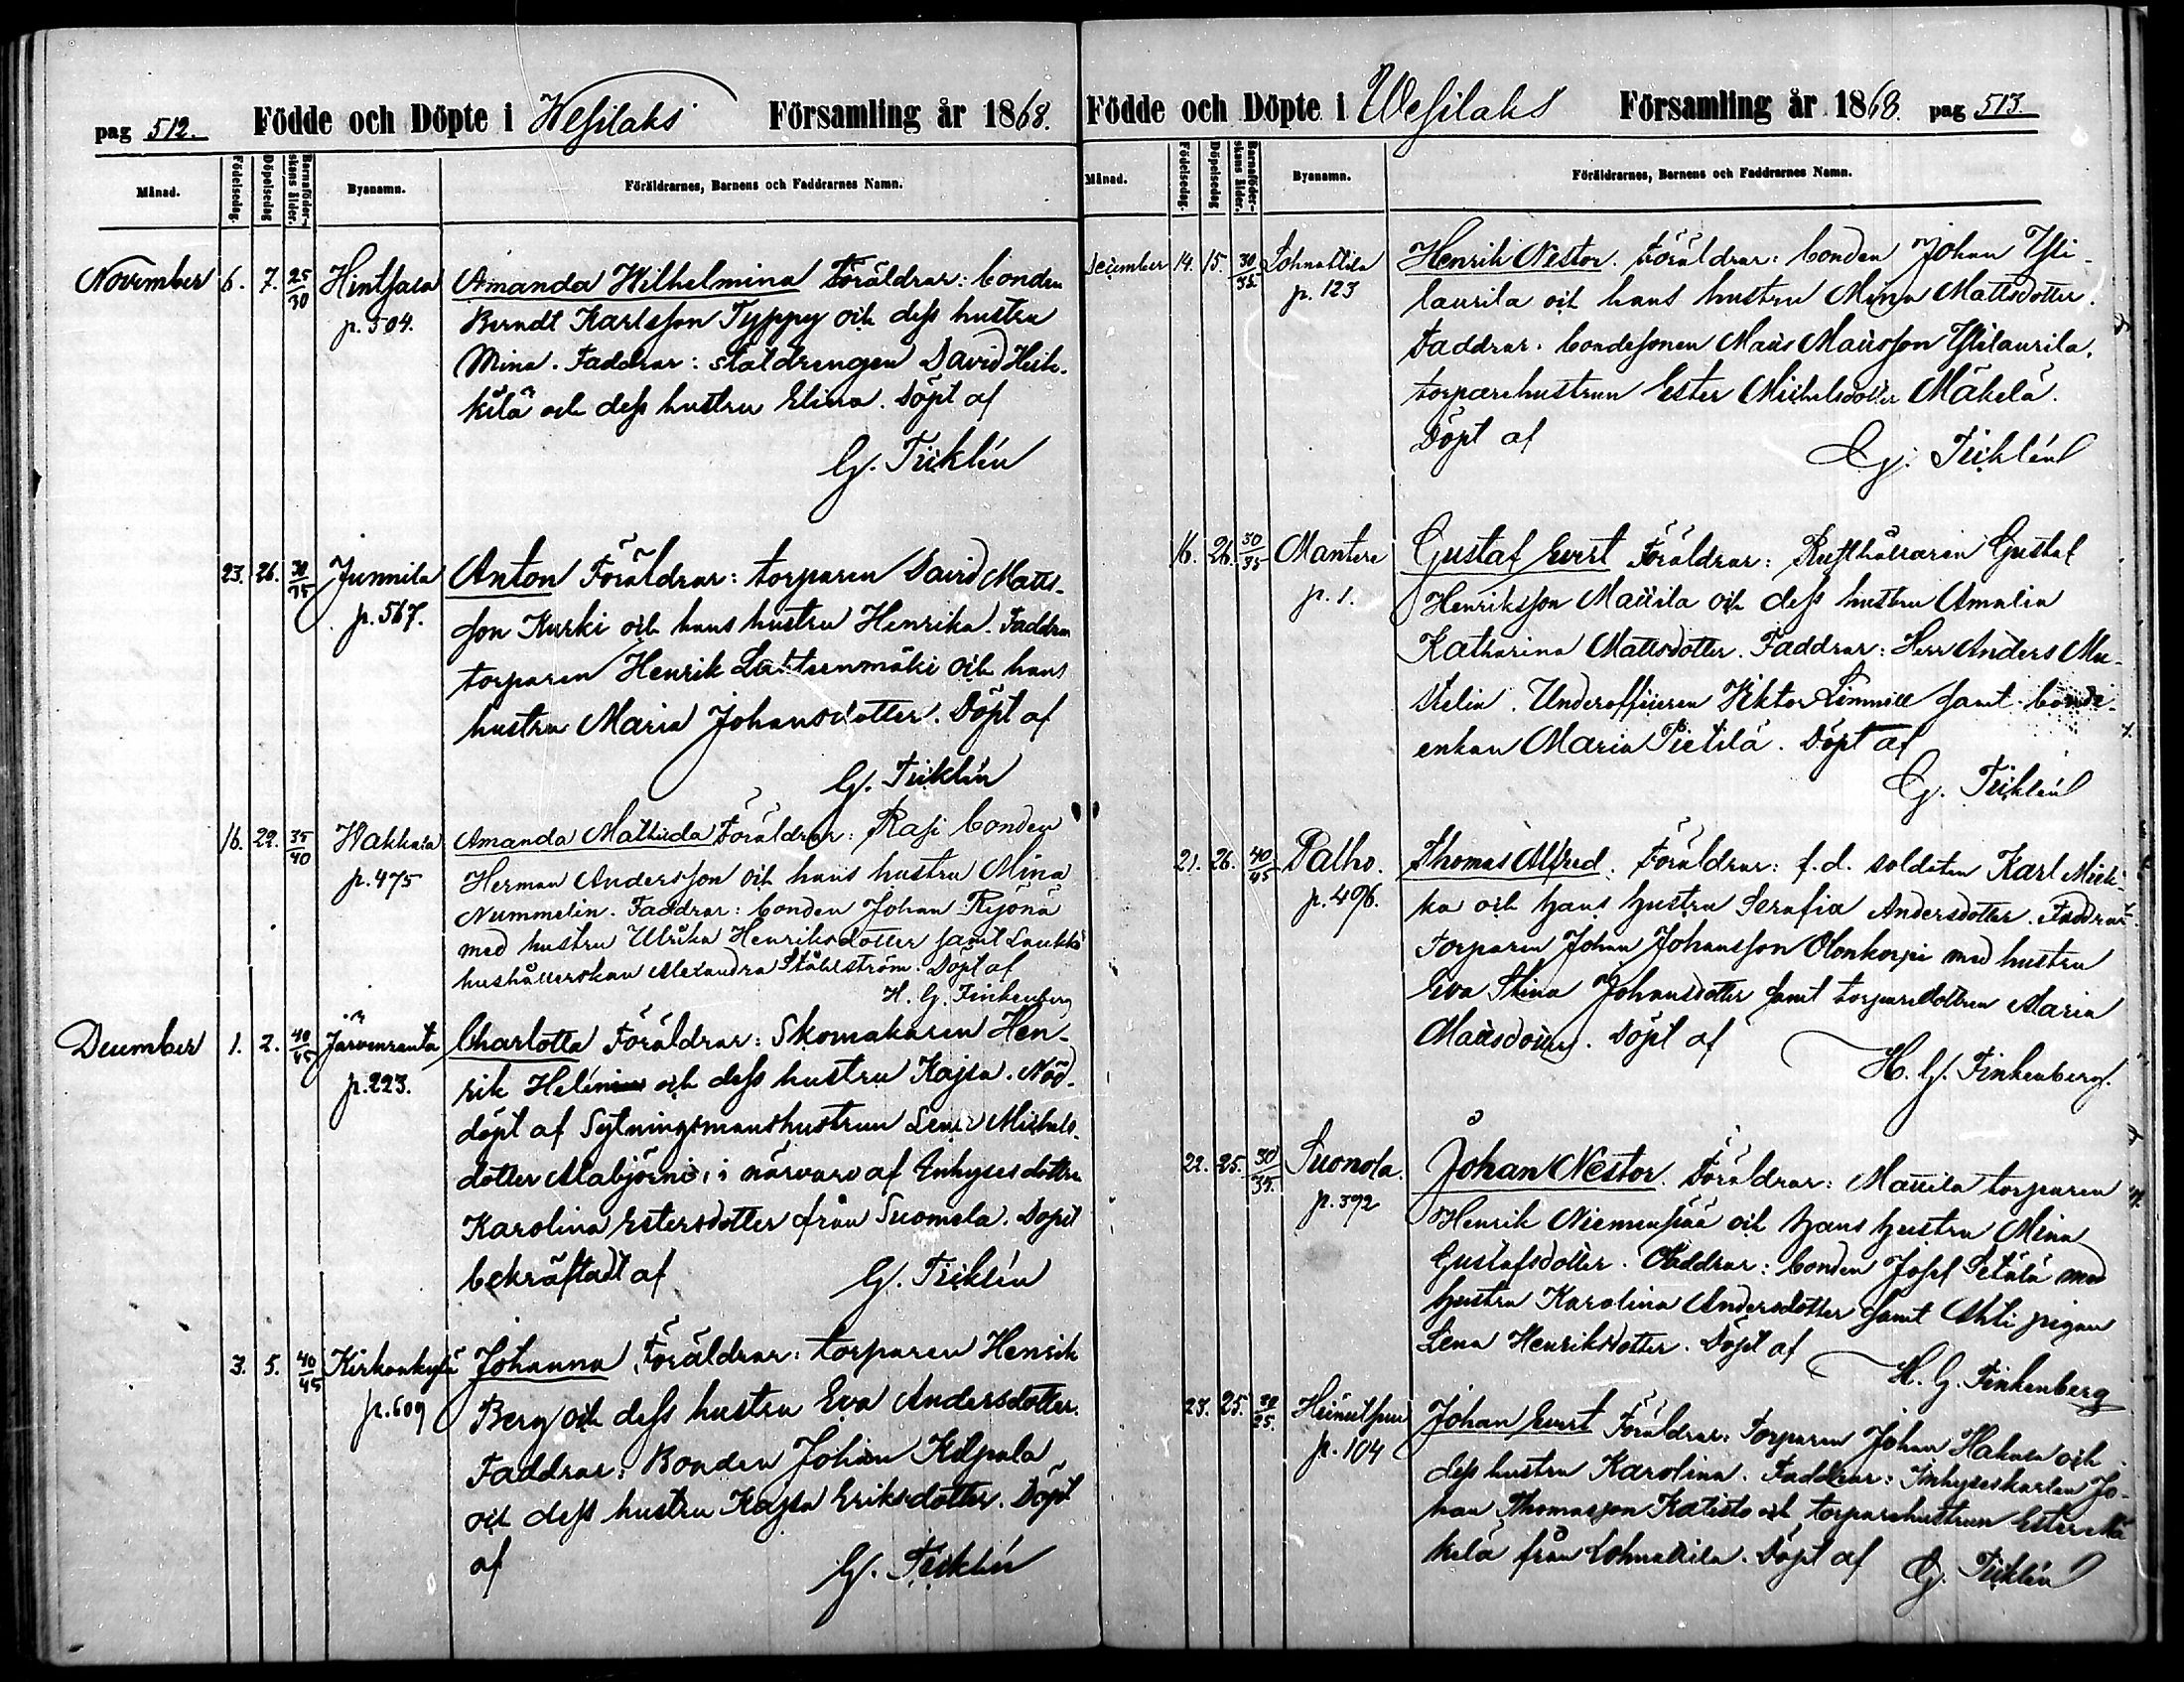 pag 512. Födde och Döpte i Wesilaks Församling år 1868.
Månad. Födelsedag. Döpelsedag Barnaföder-skans ålder. Byanamn. Föräldrarnes, Barnens och Faddrarnes Namn.
November 6. 7. 25/30 Hintsala Amanda Wilhelmina Föräldrar: bonden
p. 504. Berndt Karlsson Typpy och dess hustru
Mina. Faddrar: staldrengen David Heik-
kilä och dess hustru Elina. Döpt af
G. Ticklén
23. 26. 30/35 Junnila Anton Föräldrar: torparen David Matts-
p. 567. son Kurki och hans hustru Henrika. Faddrar
torparen Henrik Lähteenmäki och hans
hustru Maria Johansdotter. Döpt af
G. Ticklén
16. 22. 35/40 Wakkala Amanda Mathilda Föräldrar: Rasi bonden
p. 475 Herman Andersson och hans hustru Mina
Nummelin. Faddrar: bonden Johan Rejönä
med hustru Ulrika Henriksdotter samt Laukko
hushållerskan Alexandra Ståhlström. Döpt af
H. G. Finkenberg
December 1. 2. 40/45 Järvenranta Charlotta Föräldrar: Skomakaren Hen-
p. 223. rik Helén och dess hustru Kajsa. Nöd-
döpt af Sytningsmanshustrun Lena Michels-
dotter Alabjörni, i närvaro af Inhysesdottren
Karolina Estersdotter från Suomela. Dopet
bekräftadt af G. Ticklén
3. 5. 40/45 Kirkonkylä Johanna Föräldrar: torparen Henrik
p. 609 Berg och dess hustru Eva Andersdotter.
Faddrar: Bonden Johan Kilpala
och dess hustru Kajsa Eriksdotter. Döpt
af G. Ticklén
Födde och Döpte i Wesilaks Församling år 1868. pag 513.
Månad. Födelsedag. Döpelsedag Barnaföder-skans ålder. Byanamn. Föräldrarnes, Barnens och Faddrarnes Namn.
December 14. 15. 30/35 Tohnattila Henrik Nestor. Föräldrar: bonden Johan Yli-
p. 123 laurila och hans hustru Mina Mattsdotter.
Faddrar: bondesonen Matts Mattsson Ylilaurila,
torparehustrun Ester Michelsdotter Mäkelä.
Döpt af
G. Ticklén
16. 26. 30/35 Mantere Gustaf Evert Föräldrar: Rusthållaren Gustaf
p. 1. Henriksson Mattila och dess hustru Amalia
Katharina Mattsdotter. Faddrar: Herr Anders Mu-
stelin. Underofficeren Viktor Limnell samt bonde-
enkan Maria Pietilä. Döpt af
G. Ticklén
21. 26. 40/45 Palho. Thomas Alfred. Föräldrar: f.d. soldaten Karl Mick-
p. 496. ka och hans hustru Serafia Andersdotter. Faddrar:
Torparen Johan Johansson Olonkorpi med hustru
Eva Stina Johansdotter samt torparedottren Maria
Mattsdotter. Döpt af
H. G. Finkenberg.
22. 25. 30/35. Suonola. Johan Nestor. Föräldrar: Mattila torparen
p. 392 Henrik Niemenpää och hans hustru Mina
Gustafsdotter. Faddrar: bonden Josef Setälä med
hustru Karolina Andersdotter samt Ahti pigan
Lena Henriksdotter. Döpt af
H. G. Finkenberg
23. 25. 20/25. Heinutsuu Johan Evert Föräldrar: Torparen Johan Hakala och
p. 104 dess hustru Karolina. Faddrar: Inhyseskarlen Jo-
han Thomasson Katisto och torparehustrun Ester Mä-
kelä från Tohnattila. Döpt af G. Ticklén